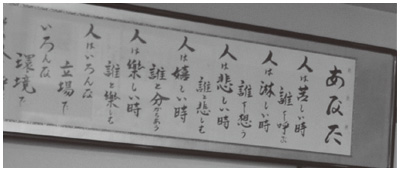 あなた
人は苦しい時
誰を呼ぶ
人は淋しい時
誰を想う
人は悲しい時
誰と悲しむ
人は嬉しい時
誰と分かちあう
人は楽しい時
誰と楽しむ
人はいろんな
立場で
いろんな
環境で